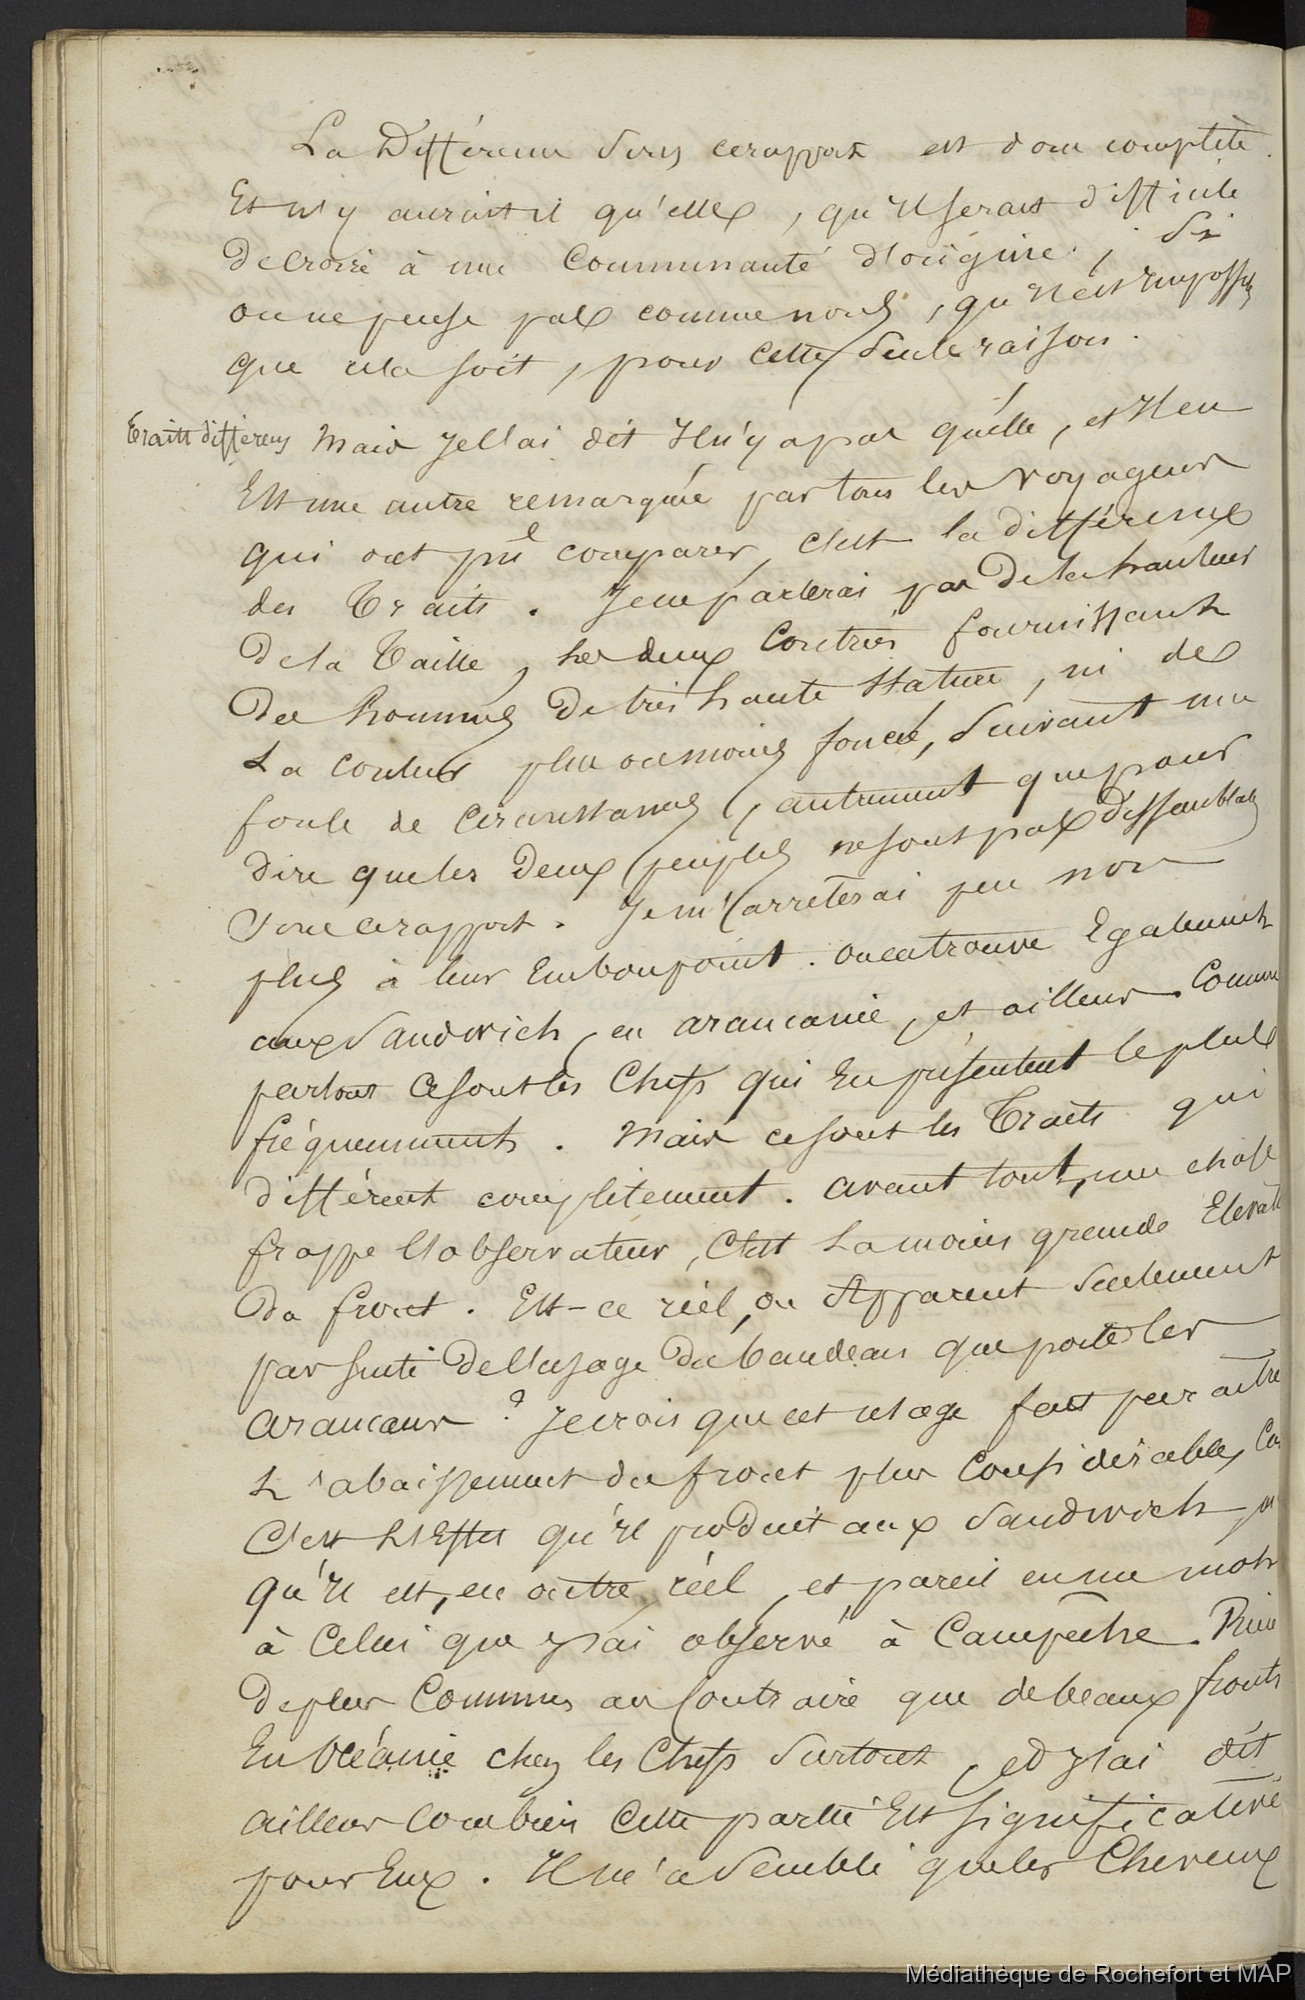 La Différence sous ce rapport est donc complète.
Et n'y aurait il qu'elle, qu'il serait difficile
De croire à une Communauté d'origine ; Si
on ne pense pas comme nous, qu'il est impossib
que cela soit, pour cette seule raison.
Traits différens
Mais je l'ai dit Il n'y a pas qu'elle, et Il en
Est une autre remarquée par tous les voyageurs
qui ont pu comparer, c'est la différence
des Traits. Je ne parlerai pas De la hauteur
De la Taille, les deux Contrées fournissant
Des hommes De très haute stature, ni de
La couleur plus ou moins foncée, suivant une
foule de Circonstances, autrement que pour
dire que les Deux peuples ne sont pas Dissemblab
sous ce rapport. Je m'arrêterai peu non
plus à leur Embonpoint. On en trouve Egalement
aux Sandwich, en araucanie, et ailleurs. Comme
partout ce sont les Chefs qui En présentent le plus
fréquemment. Mais ce sont les Traits qui
diffèrent complètement. avant tout, une chose
frappe l'observateur, C'est La moins grande Elévat
Du front. Est-ce réel, ou Apparent seulement
par suite De l'usage Du bandeau que porte les
araucans ? Je crois que cet usage fait paraitre
L'abaissement du front plus Considérable, Ca
C'est L'Effet qu'il produit aux Sandwich,
qu'il est, en outre, réel, et pareil en un mot
à Celui que j'ai observé à Campêche. Rien
De plus Commun au Contraire que de beaux fronts
En Océanie chez les Chefs surtout, et j'ai dit
ailleurs Combien Cette partie Est significative
pour Eux. Il m'a semblé que les Cheveux
Médiathèque de Rochefort et MAP